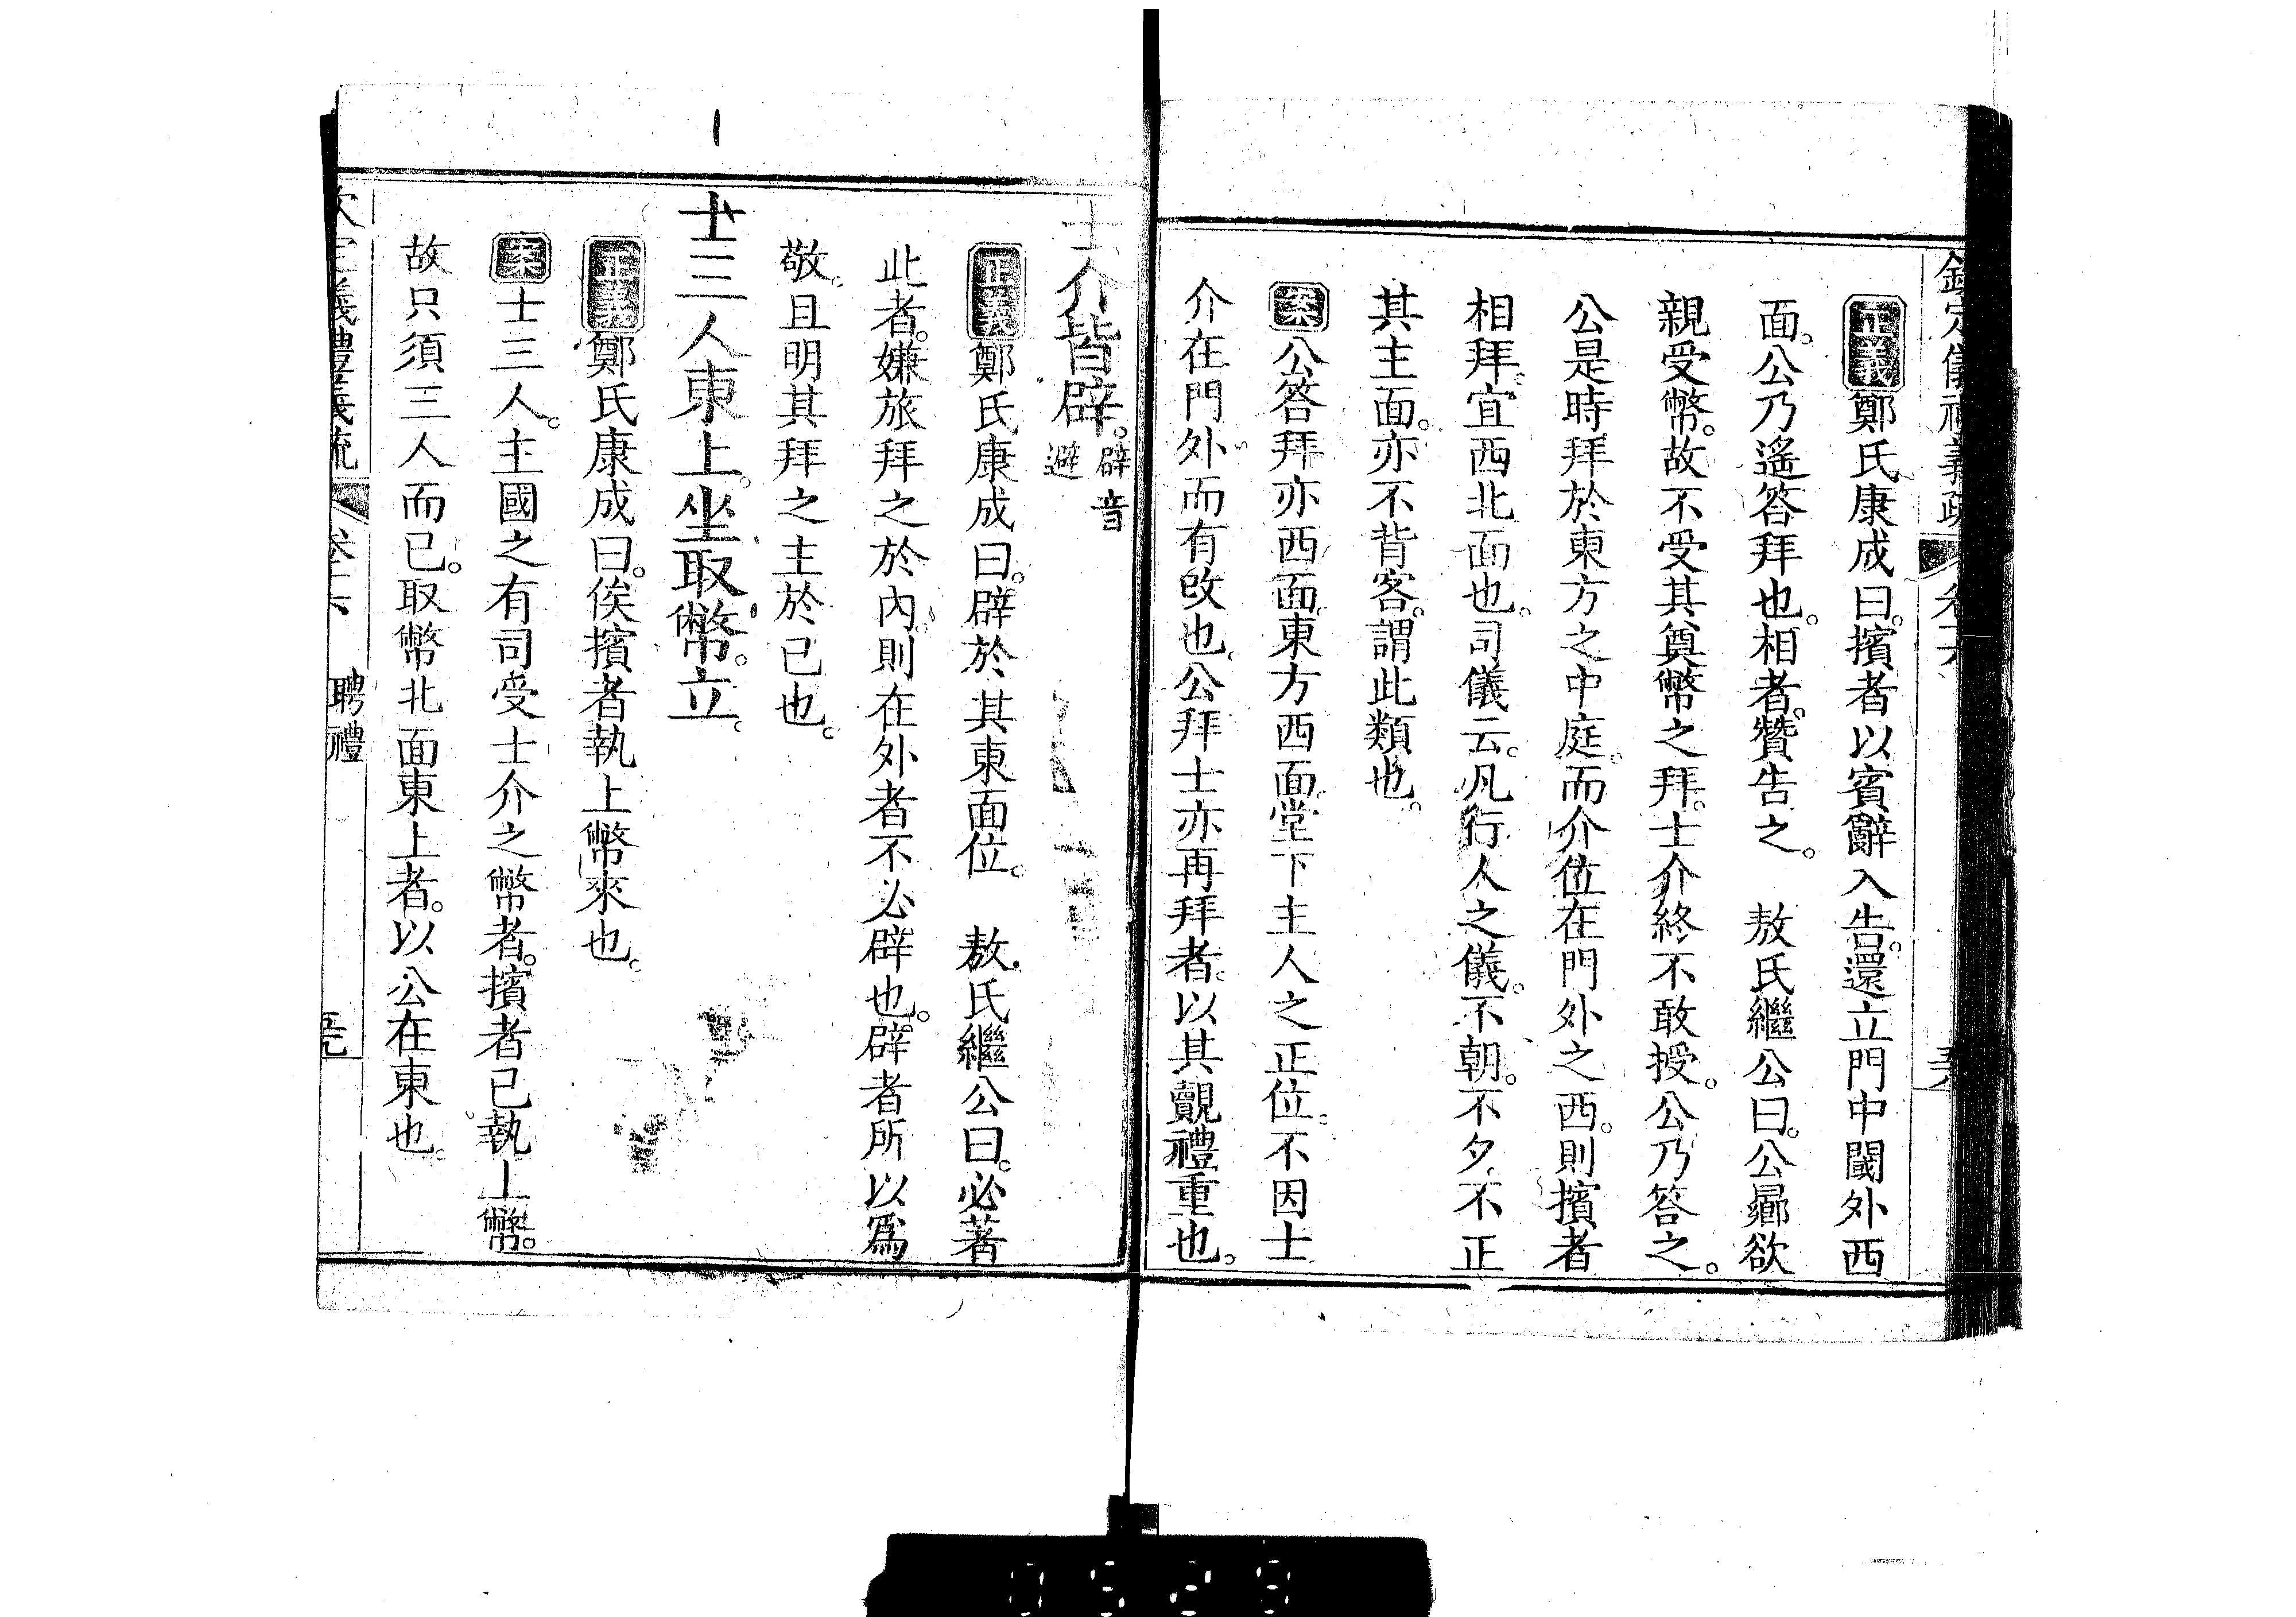 欽定儀禮義疏　卷十六
正義鄭氏康成曰。擯者以賓辭入告。還立門中闑外西
面。公乃遙答拜也。相者贊告之。　敖氏繼公曰。公曏欲
親受幣。故不受其奠幣之拜。士介終不敢授。公乃答之。
公是時拜於東方之中庭。而介位在門外之西。則擯者
相拜。宜西北面也。司儀云。凡行人之儀。不朝。不夕。不正
其主面。亦不背客。謂此類也。
案公答拜亦西面。東方西面。堂下主人之正位。不因士
介在門外而有改也。公拜士亦再拜者。以其覿禮重也。
士介皆辟。辟音避
正義鄭氏康成曰。辟於其東面位。　敖氏繼公曰。必著
此者。嫌旅拜之於內。則在外者不必辟也。辟者所以爲
敬。且明其拜之主於己也。
士三人東上。坐取幣。立。
正義鄭氏康成曰。俟擯者執上幣來也。
案士三人。主國之有司受士介之幣者。擯者已執上幣。
故只須三人而已。取幣北面東上者。以公在東也。
聘禮
0528